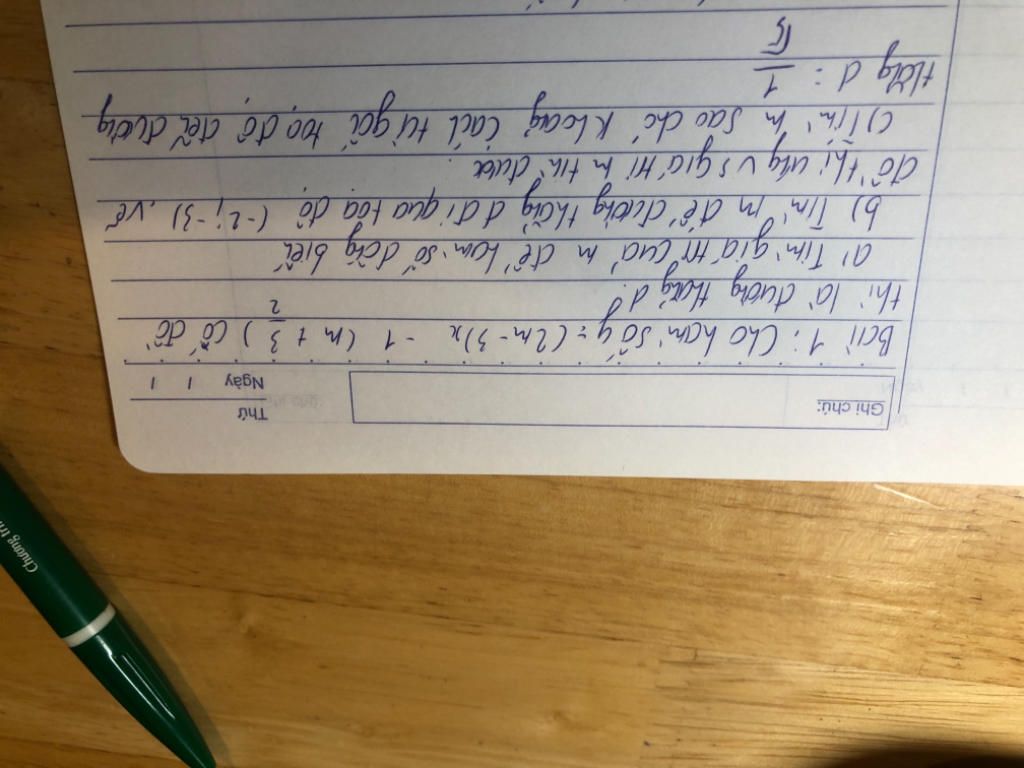 Ghi chú:
Thứ
Ngày / /
Bài 1: Cho hàm số y = (2m-3)x - 1 (m ≠ 3/2) có đồ
thị là đường thẳng d.
a) Tìm giá trị của m để hàm số đồng biến
b) Tìm m để đường thẳng d đi qua tọa độ (-2; -3), vẽ
đồ thị ứng vs giá trị m tìm được.
c) Tìm m sao cho khoảng cách từ gốc tọa độ đến đường
thẳng d: 1/√5
Chương trì